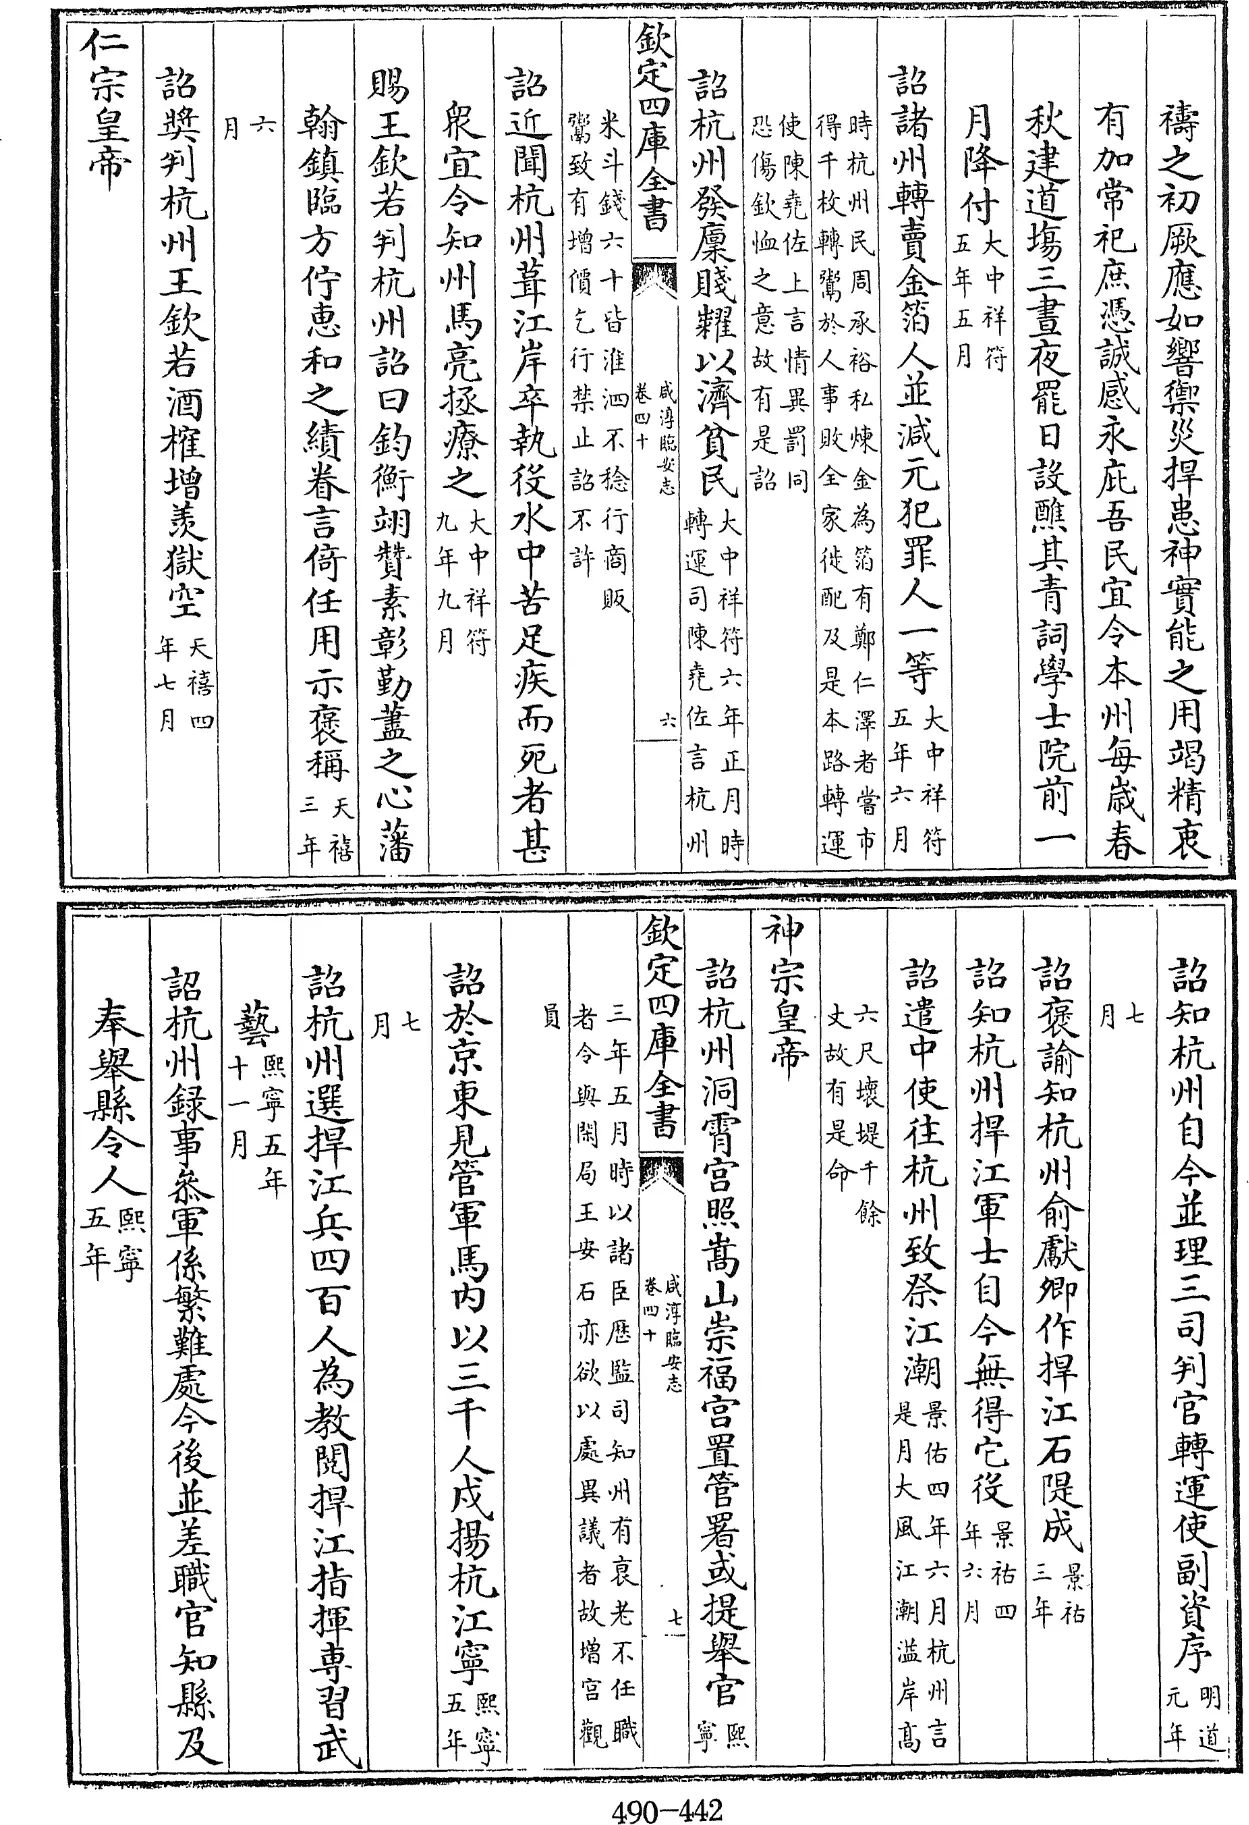 禱之初厥應如響禦災捍患神實能之用竭精衷
有加常祀庶憑誠感永庇吾民宜令本州每歳春
秋建道塲三晝夜罷日設醮其青詞學士院前一
月降付大中祥符
五年五月
詔諸州轉賣金箔人並減元犯罪人一等大中祥符
五年六月
時杭州民周承裕私煉金為箔有鄭仁澤者嘗市
得千枚轉鬻於人事敗全家徙配及是本路轉運
使陳堯佐上言情異罰同
恐傷欽恤之意故有是詔
詔杭州發廩賤糶以濟貧民大中祥符六年正月時
轉運司陳堯佐言杭州
欽定四庫全書
咸淳臨安志
卷四十
六
米斗錢六十皆淮泗不稔行商販
鬻致有增價乞行禁止詔不許
詔近聞杭州葺江岸卒執役水中苦足疾而死者甚
衆宜令知州馬亮拯療之大中祥符
九年九月
賜王欽若判杭州詔曰鈞衡翊贊素彰勤藎之心藩
翰鎮臨方佇惠和之績眷言倚任用示褒稱天禧
三年
六
月
詔奬判杭州王欽若酒榷增羨獄空天禧四
年七月
仁宗皇帝
詔知杭州自今並理三司判官轉運使副資序明道
元年
七
月
詔褒諭知杭州俞獻卿作捍江石隄成景祐
三年
詔知杭州捍江軍士自今無得它役景祐四
年六月
詔遣中使往杭州致祭江潮景佑四年六月杭州言
是月大風江潮溢岸髙
六尺壞堤千餘
丈故有是命
神宗皇帝
詔杭州洞霄宫照嵩山崇福宫置管署或提舉官熙
寧
欽定四庫全書
咸淳臨安志
卷四十
七
三年五月時以諸臣歴監司知州有衰老不任職
者令與閑局王安石亦欲以處異議者故增宫觀
員
詔於京東見管軍馬内以三千人戍揚杭江寧熙寧
五年
七
月
詔杭州選捍江兵四百人為教閲捍江指揮専習武
藝熙寧五年
十一月
詔杭州録事叅軍係繁難處今後並差職官知縣及
奉舉縣令人熙寧
五年
490-442